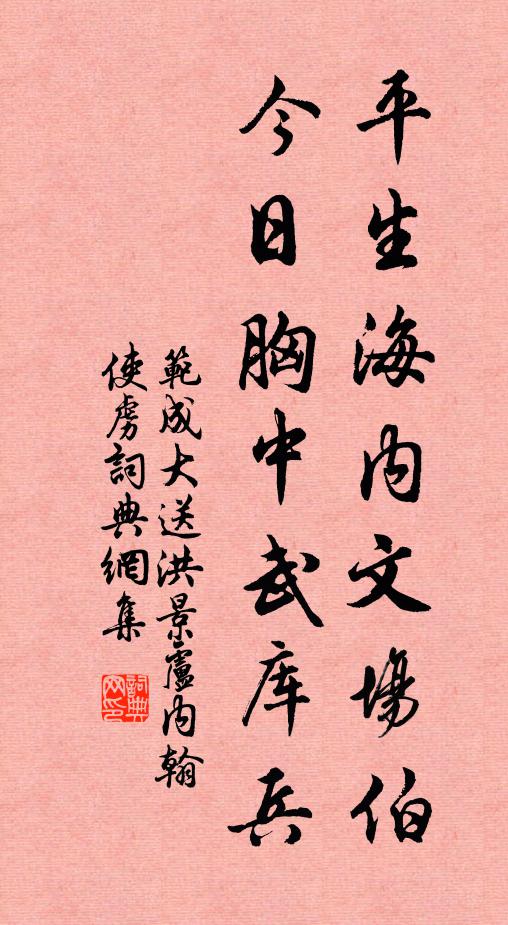 平生海内文場伯
今日胸中武库兵
範成大送洪景廬内翰
使虜詞典網集
詞典网印